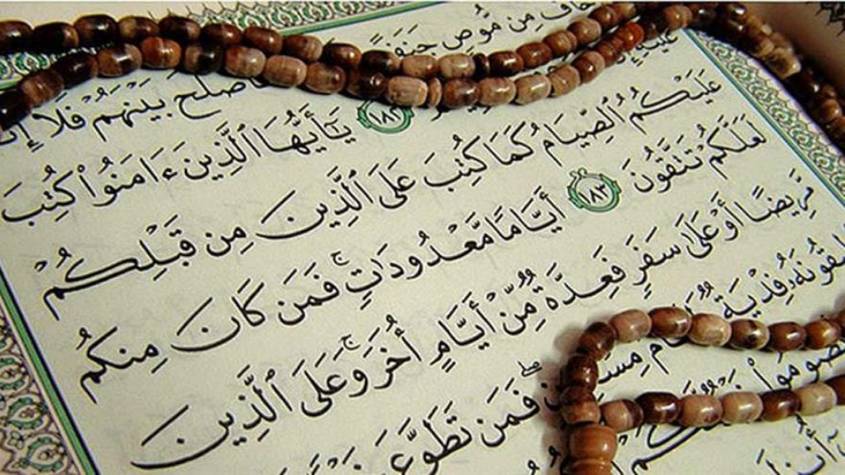 خَافَ مِن مُّوصٍ جَنَفًا
عَلَيْهِ
صْلَحَ بَيْنَهُمْ فَلَآ
١٨٢ يَٰٓأَيُّهَا ٱلَّذِينَ ءَامَنُوا۟ كُتِبَ
عَلَيْكُمُ ٱلصِّيَامُ كَمَا كُتِبَ عَلَى ٱلَّذِينَ مِن قَبْلِكُمْ
لَعَلَّكُمْ تَتَّقُونَ ١٨٣ أَيَّامًا مَّعْدُودَٰتٍۚ فَمَن كَانَ مِنكُم
مَّرِيضًا أَوْ عَلَىٰ سَفَرٍ فَعِدَّةٌ مِّنْ أَيَّامٍ أُخَرَۚ وَعَلَى ٱلَّذِينَ
يُطِيقُونَهُۥ فِدْيَةٌ فَمَن تَطَوَّعَ